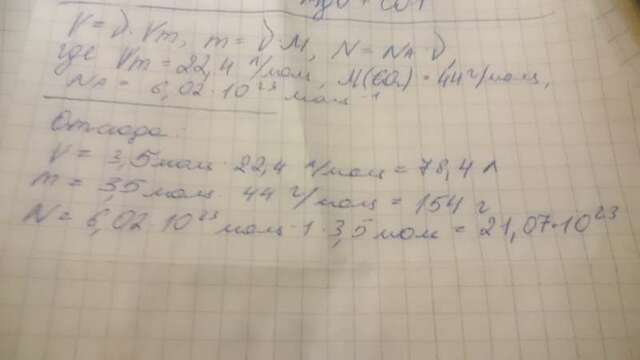 V = ν · Vm, m = ν · M, N = NA · ν,
где Vm = 22,4 л/моль, M(CO2) = 44 г/моль,
NA = 6,02 · 10²³ моль⁻¹
Отсюда:
V = 3,5 моль · 22,4 л/моль = 78,4 л
m = 3,5 моль · 44 г/моль = 154 г
N = 6,02 · 10²³ моль - 1 · 3,5 моль = 21,07 · 10²³